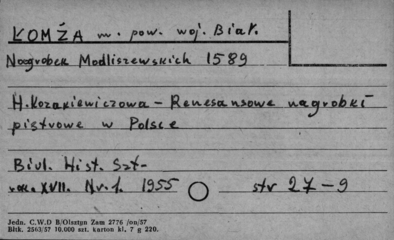 KOMŻA m. pow. woj. Biał.
Nagrobek Modliszewskich 1589
H. Kozakiewiczowa - Renesansowe nagrobki
piętrowe w Polsce
Biul. Hist. Szt-
rok XVII. Nr. 1. 1955 str 27-9
Jedn. C.W.D B/Olsztyn Zam 2776 /on/57
Bltk. 2563/57 10.000 szt. karton kl. 7 g 220.